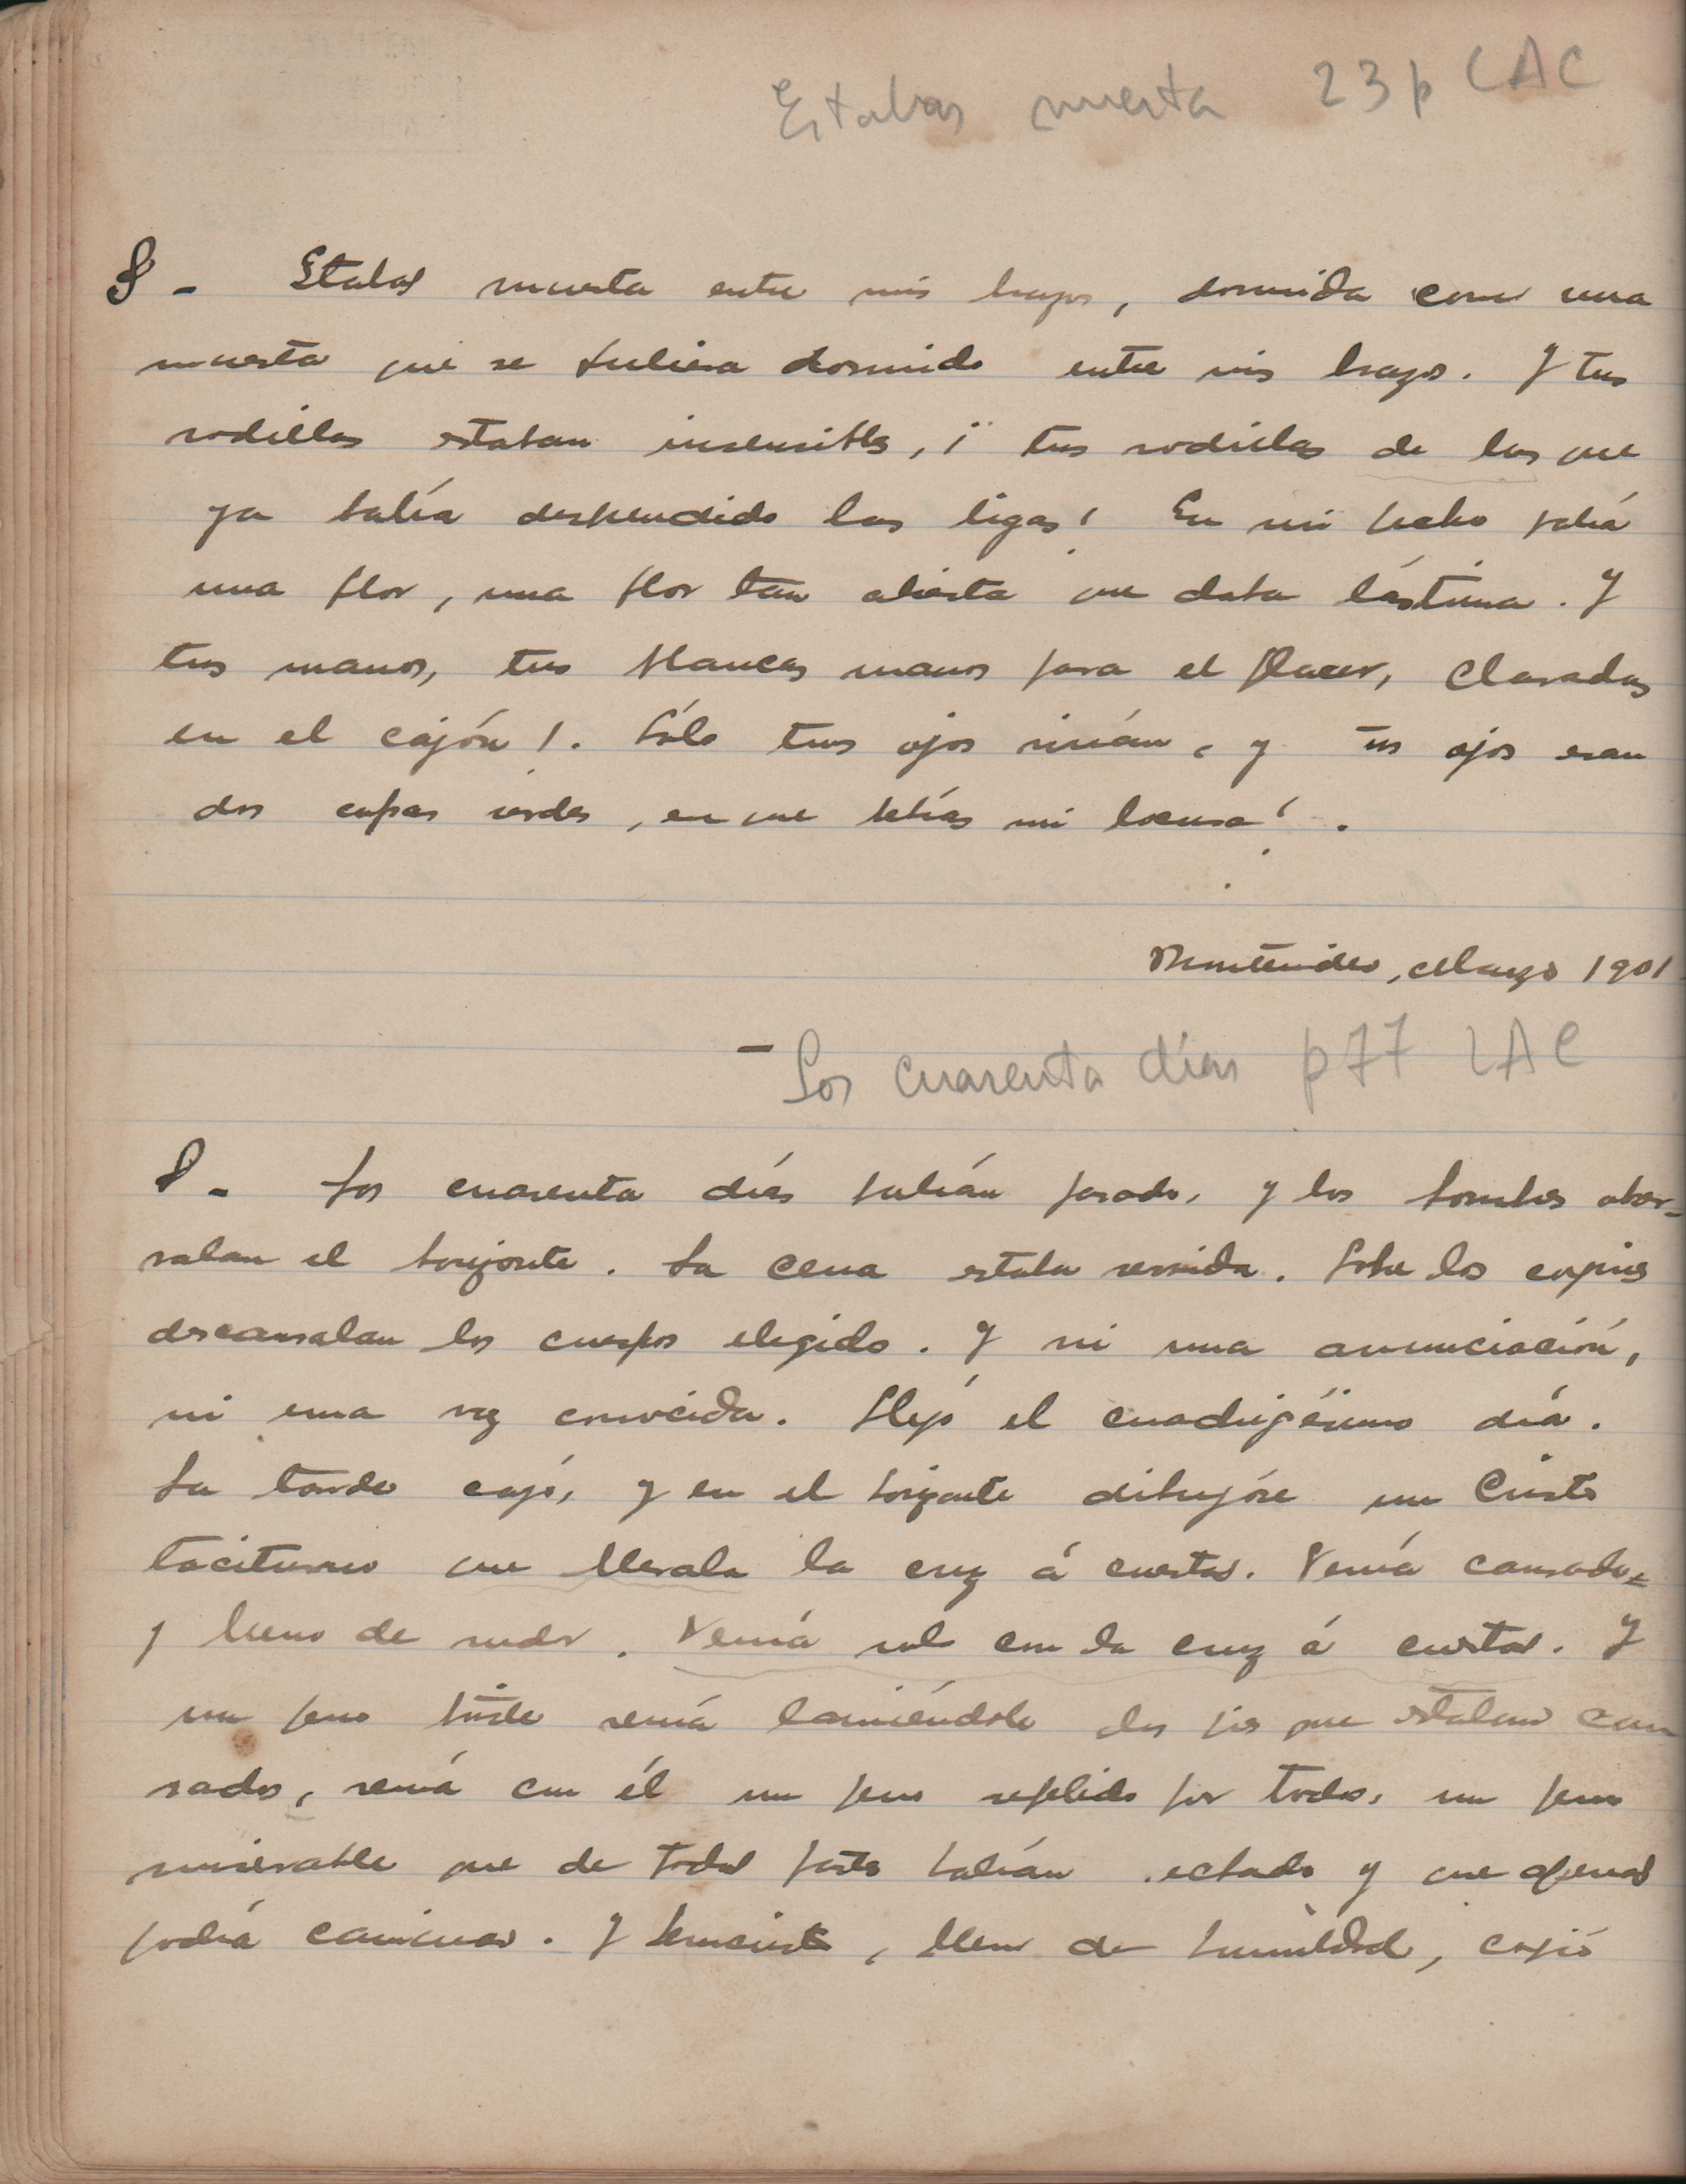 Estabas muerta 23 p LAC
S - Estabas muerta entre mis brazos, dormida como una
muerta que se hubiera dormido entre mis brazos. Y tus
rodillas estaban insensibles, ¡ tus rodillas de las que
ya había desprendido las ligas! En mi pecho había
una flor, una flor tan abierta que daba lástima. Y
tus manos, tus blancas manos para el placer, clavadas
en el cajón!. Sólo tus ojos vivían, y tus ojos eran
dos copas verdes, en que bebías mi locura!.
Montevideo, Marzo 1901
- Los cuarenta días p 77 LAC
S - Los cuarenta días habían pasado, y los hombres obser-
vaban el horizonte. La cena estaba servida. Sobre los cojines
descansaban los cuerpos elegidos. Y ni una anunciación,
ni una voz conocida. Llegó el cuadrigésimo día.
La tarde cayó, y en el horizonte dibujóse un Cristo
taciturno que llevaba la cruz á cuestas. Venía cansado
y lleno de sudor. Venía solo con la cruz á cuestas. Y
un perro triste venía lamiéndole los pies que estaban can
sados, venía con él un perro repelido por todos, un perro
miserable que de todas partes habían echado y que apenas
podía caminar. Y Jesucristo, lleno de humildad, cogió